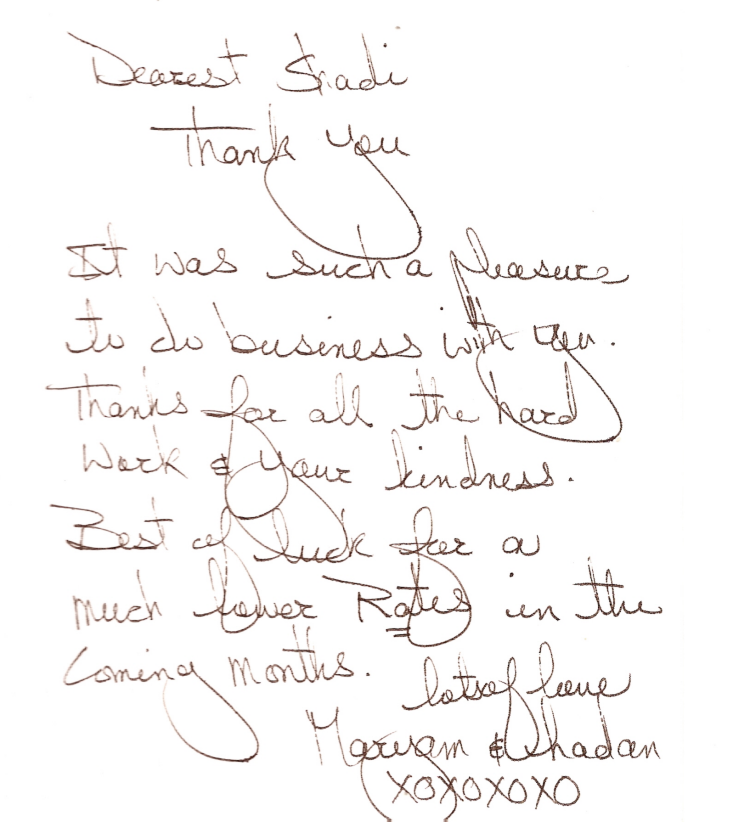 Dearest Shadi
Thank you
It was such a pleasure
to do business with you.
Thanks for all the hard
work & your kindness.
Best of luck for a
much lower Rates in the
coming months.
lots of love
Maryam & Shadan
XOXOXOXO